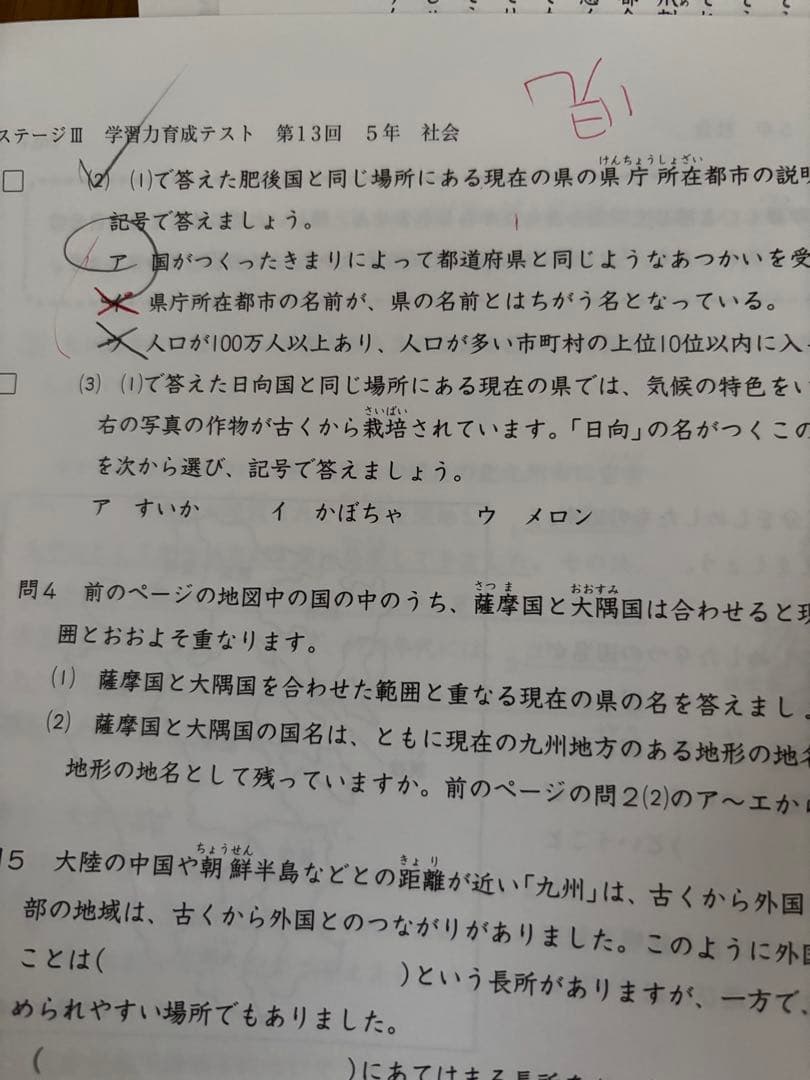 ステージⅢ 学習力育成テスト 第13回 5年 社会
(2) (1)で答えた肥後国と同じ場所にある現在の県の県庁所在都市の説明
けんちょうしょざい
記号で答えましょう。
ア 国がつくったきまりによって都道府県と同じようなあつかいを受
イ 県庁所在都市の名前が、県の名前とはちがう名となっている。
ウ 人口が100万人以上あり、人口が多い市町村の上位10位以内に入
(3) (1)で答えた日向国と同じ場所にある現在の県では、気候の特色をい
右の写真の作物が古くから栽培されています。「日向」の名がつくこの
さいばい
を次から選び、記号で答えましょう。
ア すいか イ かぼちゃ ウ メロン
問4 前のページの地図中の国の中のうち、薩摩国と大隅国は合わせると現
さつま おおすみ
囲とおおよそ重なります。
(1) 薩摩国と大隅国を合わせた範囲と重なる現在の県の名を答えましょ
(2) 薩摩国と大隅国の国名は、ともに現在の九州地方のある地形の地名
地形の地名として残っていますか。前のページの問2(2)のア〜エから
5 大陸の中国や朝鮮半島などとの距離が近い「九州」は、古くから外国
ちょうせん きょり
部の地域は、古くから外国とのつながりがありました。このように外国
ことは( )という長所がありますが、一方で、
められやすい場所でもありました。
( )にあてはまる長所を